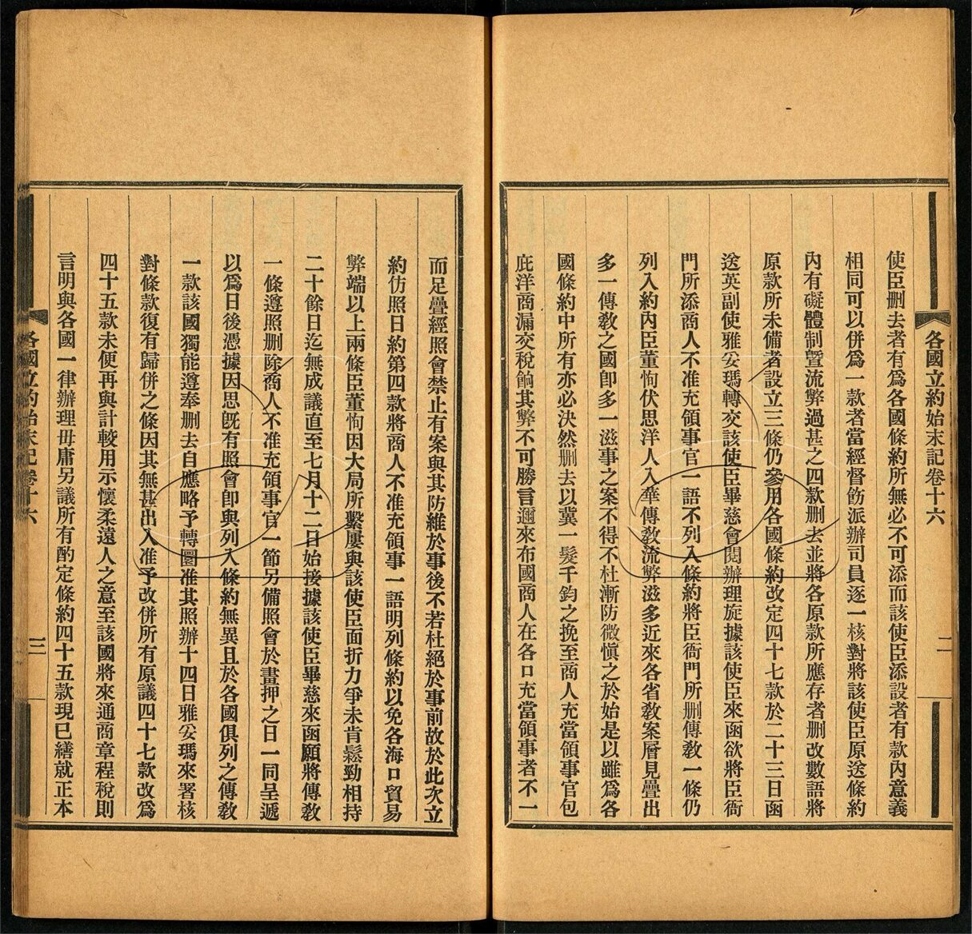 各國立約始末記卷十六
二
使臣删去者有爲各國條約所無必不可添而該使臣添設者有款內意義
相同可以併爲一款者當經督飭派辦司員逐一核對將該使臣原送條約
內有礙體制曁流弊過甚之四款删去並將各原款所應存者删改數語將
原款所未備者設立三條仍參用各國條約改定四十七款於二十三日函
送英副使雅妥瑪轉交該使臣畢慈會閱辦理旋據該使臣來函欲將臣衙
門所添商人不准充領事官一語不列入條約將臣衙門所删傳敎一條仍
列入約內臣董恂伏思洋人入華傳敎流弊滋多近來各省敎案層見疊出
多一傳敎之國卽多一滋事之案不得不杜漸防微愼之於始是以雖爲各
國條約中所有亦必決然删去以冀一髮千鈞之挽至商人充當領事官包
庇洋商漏交稅餉其弊不可勝言邇來布國商人在各口充當領事者不一
而足疊經照會禁止有案與其防維於事後不若杜絕於事前故於此次立
約仿照日約第四款將商人不准充領事一語明列條約以免各海口貿易
弊端以上兩條臣董恂因大局所繫屢與該使臣面折力爭未肯鬆勁相持
二十餘日迄無成議直至七月十二日始接據該使臣畢慈來函願將傳敎
一條遵照删除商人不准充領事官一節另備照會於畫押之日一同呈遞
以爲日後憑據因思旣有照會卽與列入條約無異且於各國俱列之傳敎
一款該國獨能遵奉删去自應略予轉圜准其照辦十四日雅妥瑪來署核
對條款復有歸併之條因其無甚出入准予改併所有原議四十七款改爲
四十五款未便再與計較用示懷柔遠人之意至該國將來通商章程稅則
言明與各國一律辦理毋庸另議所有酌定條約四十五款現已繕就正本
各國立約始末記卷十六
三